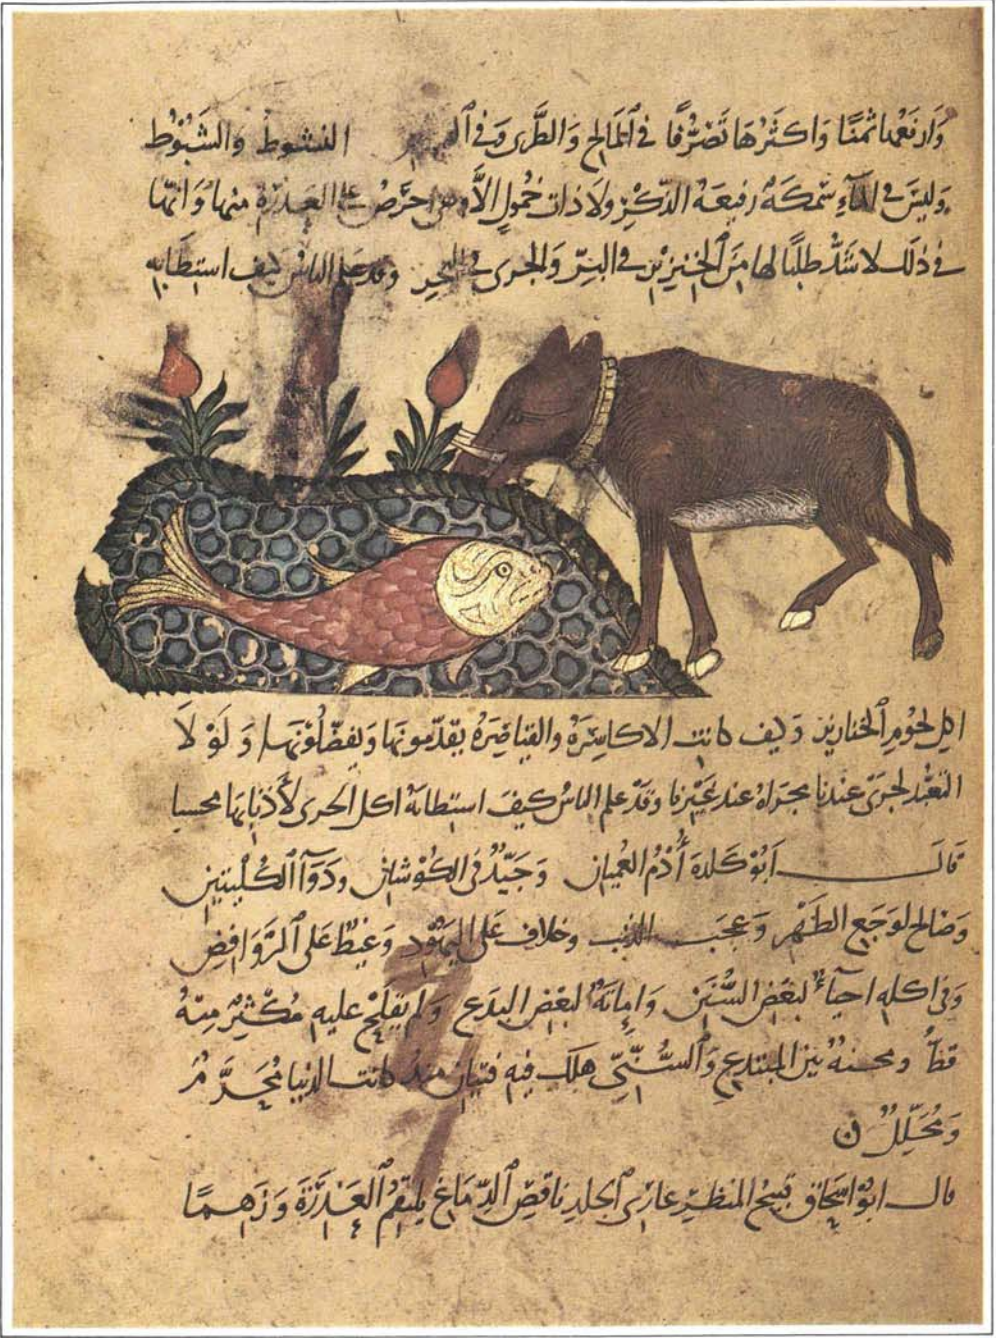 وَارفَعُها ثمنًا وَاكثَرُهَا تَصَرُّفًا فى المَالِح وَالطَّرى وَفى الشبوط والشَّبُّوُط
وَليسَ فى المآءِ سَمَكَةٌ رفيعَةُ الذّكرِ ولا ذات خُمولٍ الَّا وهى احرَصُ على العَذِرَة منها وَانّها
فى ذلك لاشَدُّ طلبًا لها مِنَ الخِنزِيرِ فى البَرّ وَالجرى فى البحر وقد علم الناسُ كيف استطابه
اكل لحُومِ الخنازير وَكيف كانت الاكاسِرَةُ والقياصِرَةُ يقدّمونها وَيفضّلونها وَلَوْ لَا
التعَبُّد لجرَى عندَنا مجراهُ عند غَيْرِنا وقدْ علم الناسُ كيفَ استطابة اكل الجرى لأَذنابها
قالَ ابُوْ كلدة أُدْمُ العُميان وَجَيّدٌ فى الكوْشان ودَوَآءُ الكُليتين
وَصَالح لوَجَع الظَهْر وَعجب الذنب وخلاف على اليهُود وَغيظٌ على الرَّوَافِض
وَفى اكله احيآءٌ لبَعْض السُّنَنِ وَامِاتَةٌ لبعْض البدَع وَلم يفلج عليه مُكثِرٌ مِنْهُ
قطُّ ومحنةٌ بَيْن المبتدع وَالسُّنّىّ هلكَ فيه فئتان منذ كانت الدنيا مُحَرَّمٌ
وَمُحَلِّلٌ
قال ابوْ اسحاق قبيحُ المنظرِ عارى الجلدِ ناقصُ الدِّمَاغ يلتقمُ العَذِرَةَ وَ